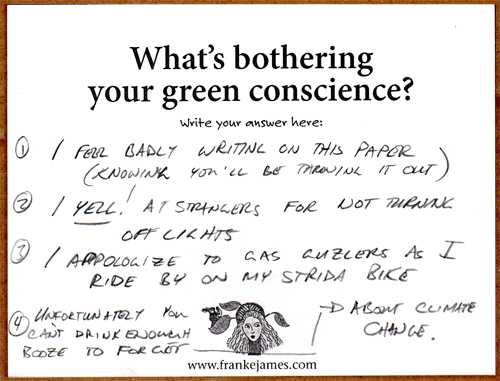 What's bothering
your green conscience?
Write your answer here:
① I FEEL BADLY WRITING ON THIS PAPER
(KNOWING YOU'LL BE THROWING IT OUT)
② I YELL! AT STRANGERS FOR NOT TURNING
OFF LIGHTS
③ I APPOLOGIZE TO GAS GUZLERS AS I
RIDE BY ON MY STRIDA BIKE
④ UNFORTUNATELY YOU
CAN'T DRINK ENOUGH
BOOZE TO FORGET
→ ABOUT CLIMATE
CHANGE.
www.frankejames.com